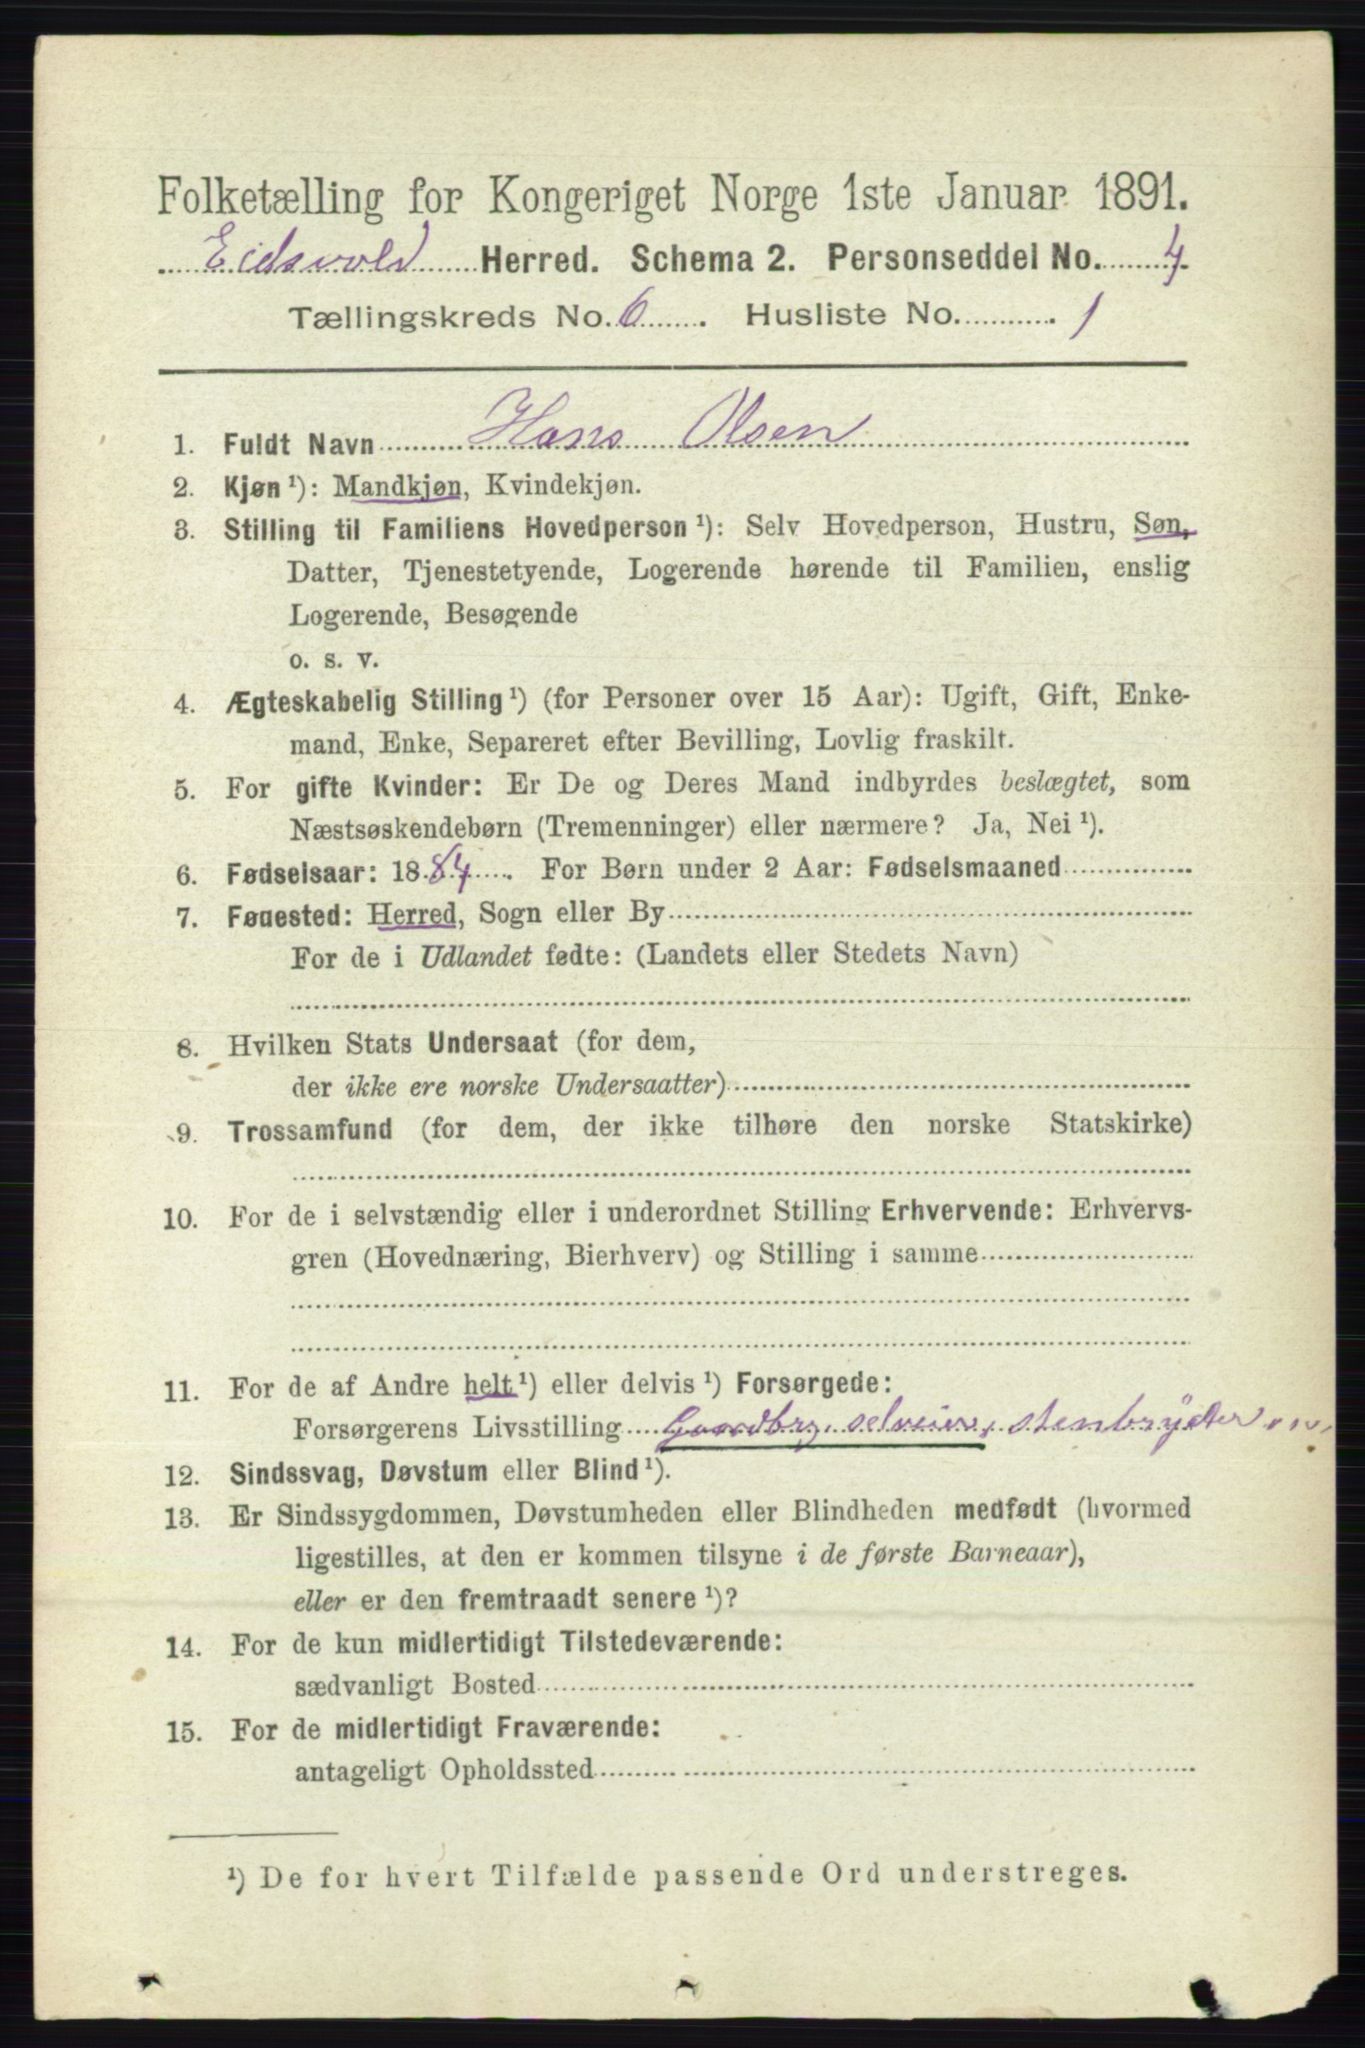 Folketælling for Kongeriget Norge 1ste Januar 1891.
Eidsvold Herred. Schema 2. Personseddel No. 4.
Tællingskreds No. 6. Husliste No. 1
1. Fuldt Navn Hans Olsen
2. Kjøn ¹): Mandkjøn, Kvindekjøn.
3. Stilling til Familiens Hovedperson ¹): Selv Hovedperson, Hustru, Søn,
Datter, Tjenestetyende, Logerende hørende til Familien, enslig
Logerende, Besøgende
o. s. v.
4. Ægteskabelig Stilling ¹) (for Personer over 15 Aar): Ugift, Gift, Enke-
mand, Enke, Separeret efter Bevilling, Lovlig fraskilt.
5. For gifte Kvinder: Er De og Deres Mand indbyrdes beslægtet, som
Næstsøskendebørn (Tremenninger) eller nærmere? Ja, Nei ¹).
6. Fødselsaar: 1884. For Børn under 2 Aar: Fødselsmaaned
7. Føuested: Herred, Sogn eller By
For de i Udlandet fødte: (Landets eller Stedets Navn)
8. Hvilken Stats Undersaat (for dem,
der ikke ere norske Undersaatter)
9. Trossamfund (for dem, der ikke tilhøre den norske Statskirke)
10. For de i selvstændig eller i underordnet Stilling Erhvervende: Erhvervs-
gren (Hovednæring, Bierhverv) og Stilling i samme
11. For de af Andre helt ¹) eller delvis ¹) Forsørgede:
Forsørgerens Livsstilling Gaardbrg. selveier, stenbryder
12. Sindssvag, Døvstum eller Blind ¹).
13. Er Sindssygdommen, Døvstumheden eller Blindheden medfødt (hvormed
ligestilles, at den er kommen tilsyne i de første Barneaar),
eller er den fremtraadt senere ¹)?
14. For de kun midlertidigt Tilstedeværende:
sædvanligt Bosted
15. For de midlertidigt Fraværende:
antageligt Opholdssted
¹) De for hvert Tilfælde passende Ord understreges.